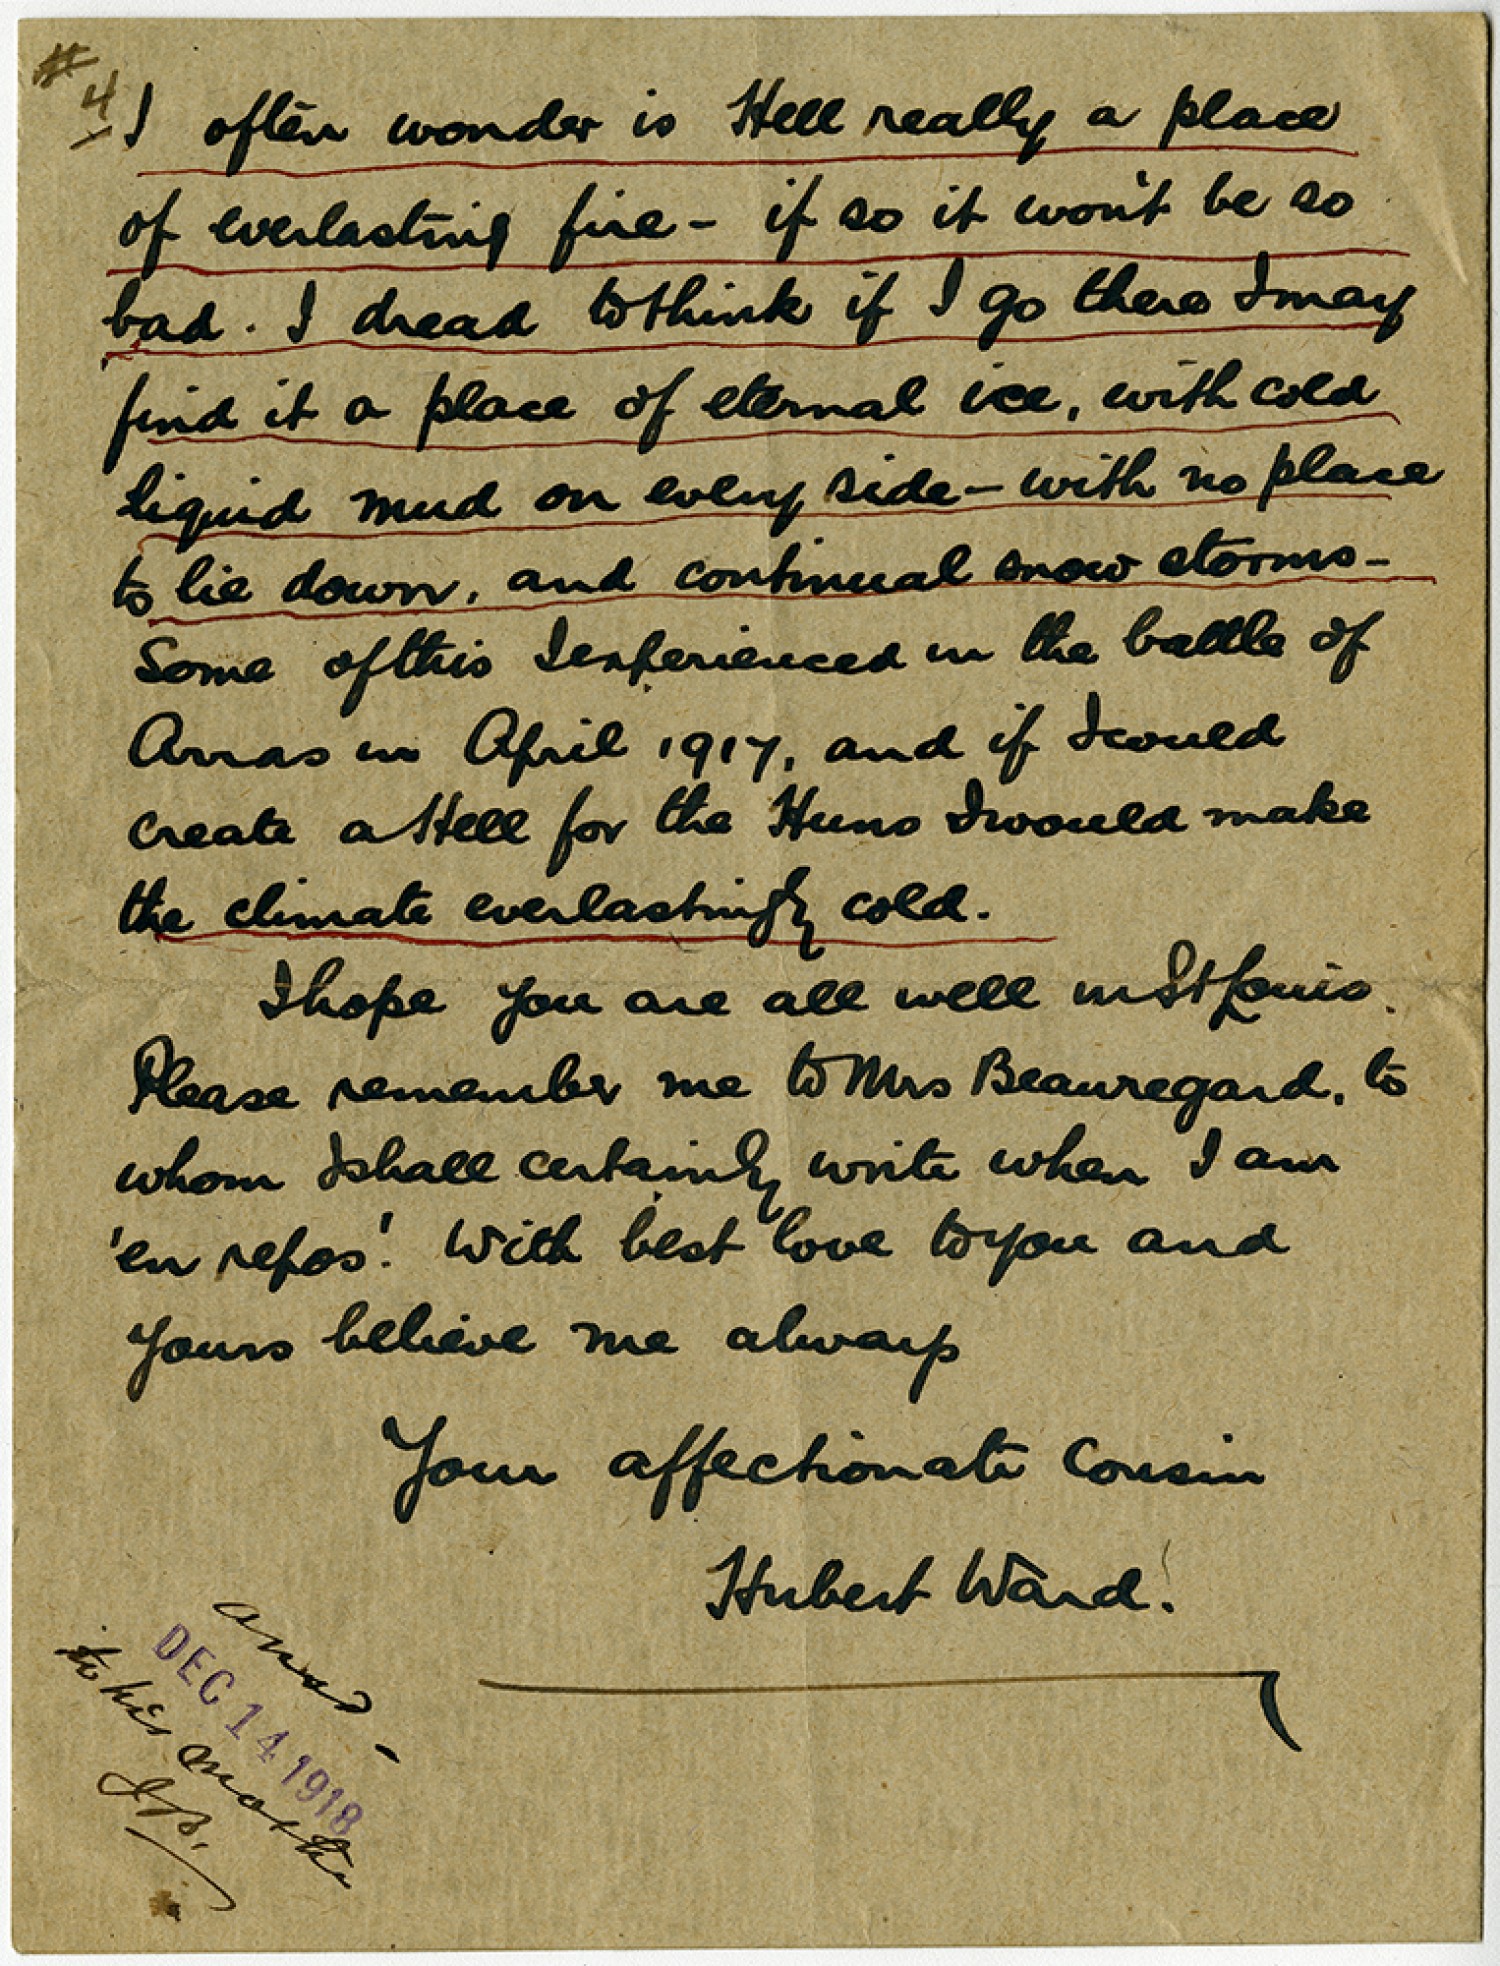 # 4
I often wonder is Hell really a place
of everlasting fire – if so it won't be so
bad. I dread to think if I go there I may
find it a place of eternal ice, with cold
liquid mud on every side – with no place
to lie down, and continual snow storms –
Some of this I experienced in the battle of
Arras in April 1917, and if I could
create a Hell for the Huns I would make
the climate everlastingly cold.
I hope you are all well in St Louis.
Please remember me to Mrs Beauregard, to
whom I shall certainly write when I am
'en repos'. With best love to you and
yours believe me always
Your affectionate Cousin
Hubert Ward.
DEC 14 1918
to his mother